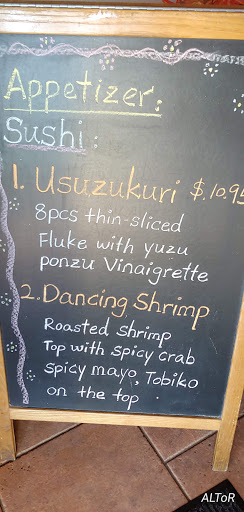 Appetizer:
Sushi:
1. Usuzukuri $10.95
8pcs thin-sliced
Fluke with yuzu
ponzu Vinaigrette
2. Dancing Shrimp
Roasted Shrimp
Top with spicy crab
spicy mayo, Tobiko
on the top
ALToR